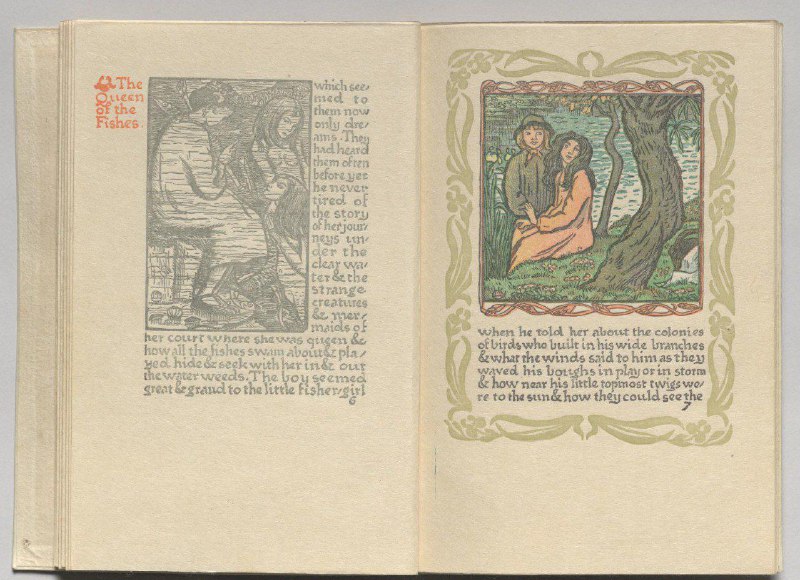 The
Queen
of the
Fishes.
which see-
med to
them now
only dre-
ams. They
had heard
them often
before, yet
he never
tired of
the story
of her jour-
neys un-
der the
clear wa-
ter & the
strange
creatures
& mer-
maids of
her court where she was queen &
how all the fishes swam about & pla-
yed hide & seek with her in & out
the water weeds. The boy seemed
great & grand to the little fisher-girl
6
when he told her about the colonies
of birds who built in his wide branches
& what the winds said to him as they
waved his boughs in play or in storm
& how near his little topmost twigs we-
re to the sun & how they could see the
7